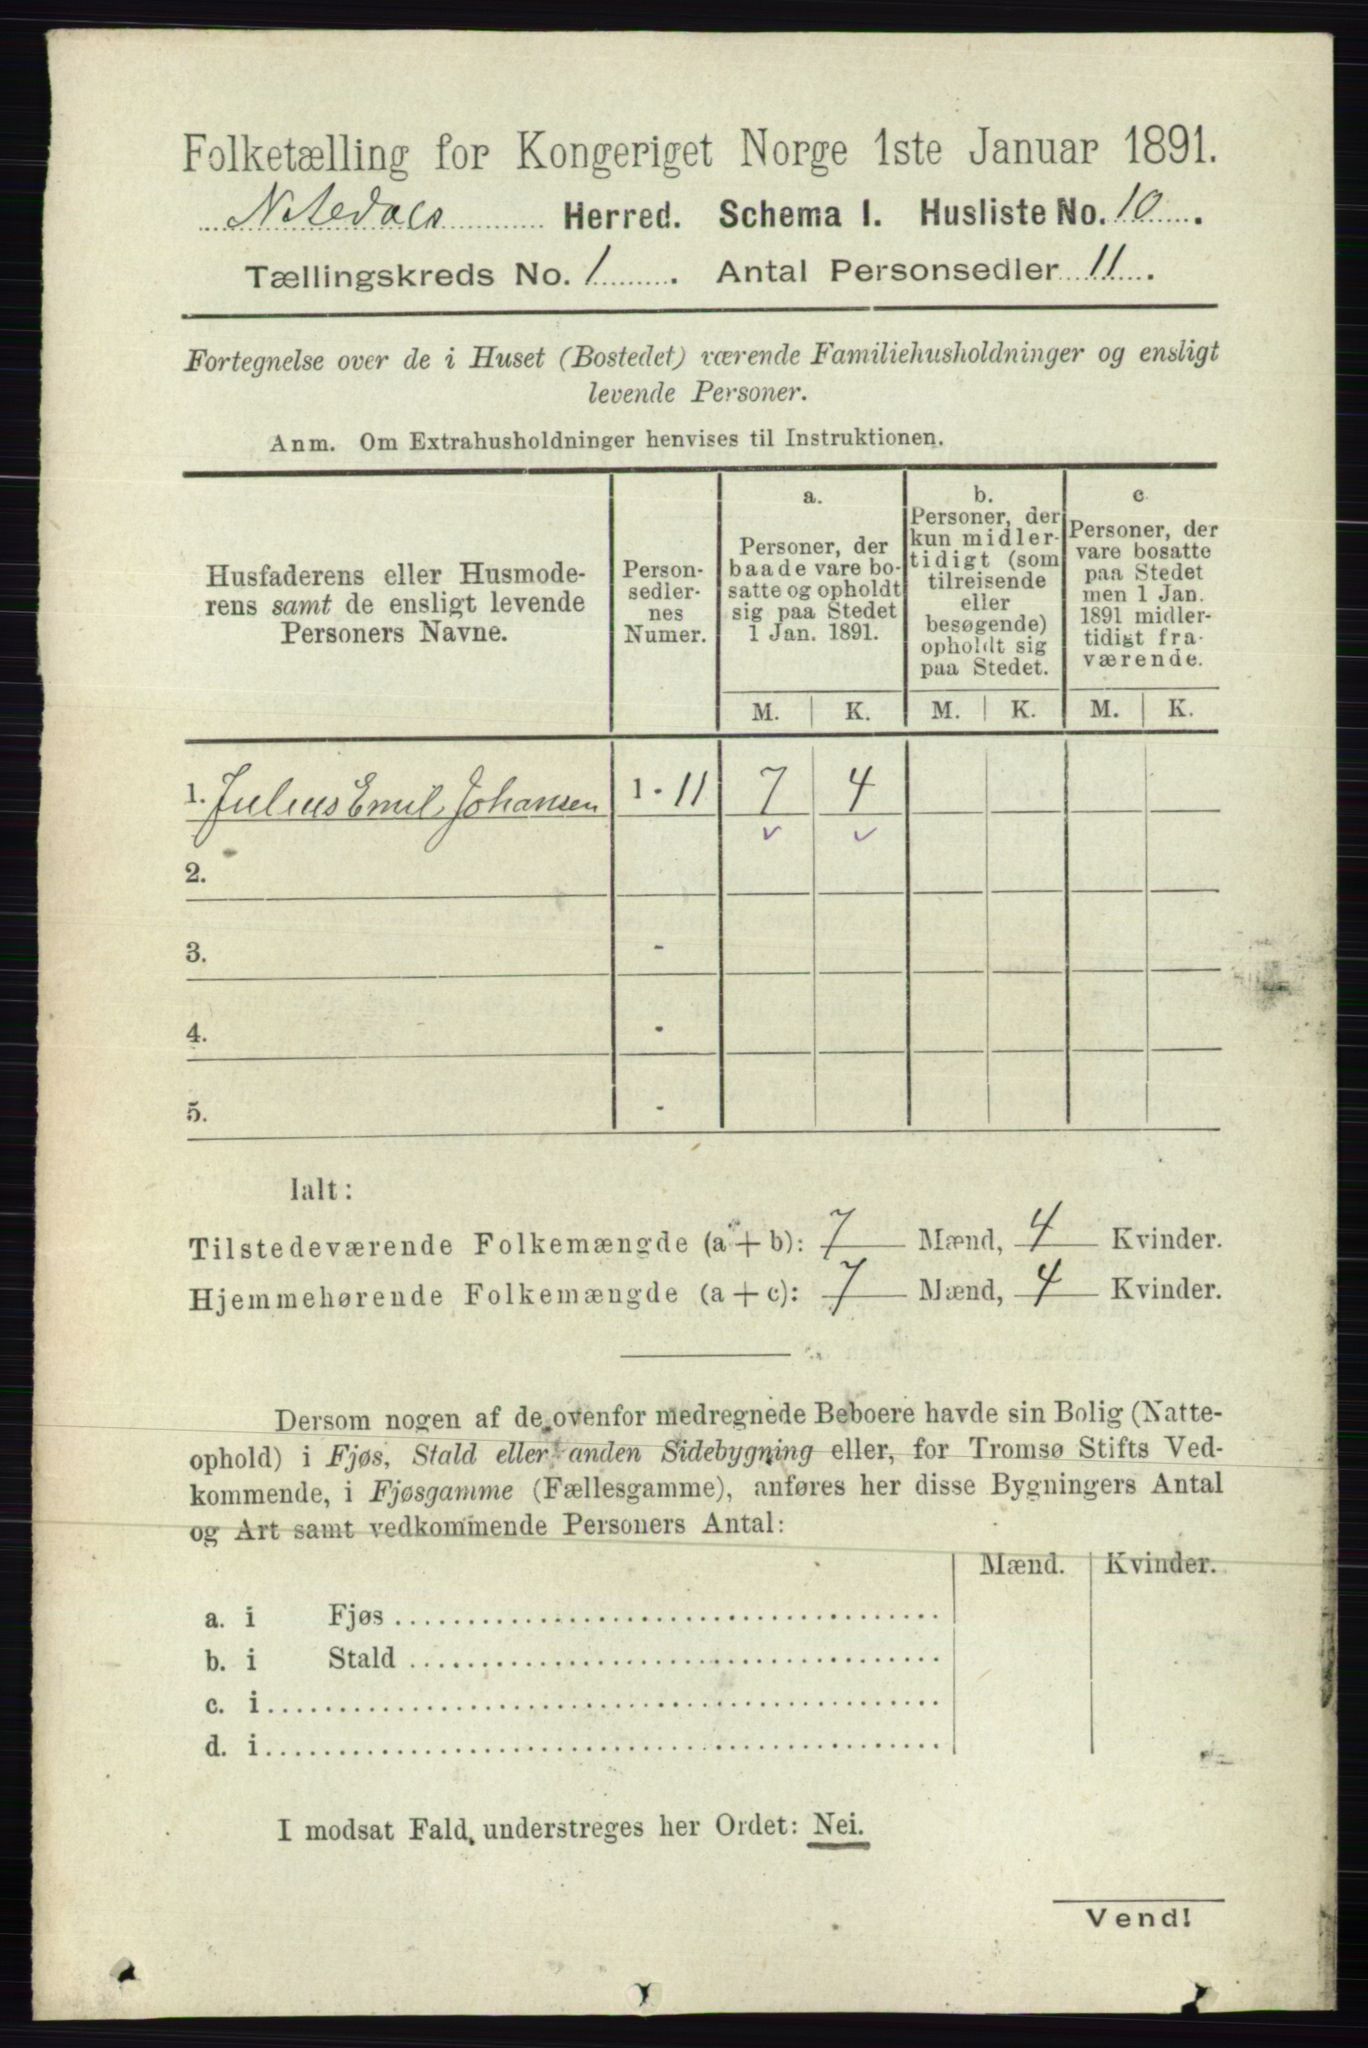 Folketælling for Kongeriget Norge 1ste Januar 1891.
Nitedals Herred. Schema I. Husliste No. 10.
Tællingskreds No. 1. Antal Personsedler 11.
Fortegnelse over de i Huset (Bostedet) værende Familiehusholdninger og ensligt
levende Personer.
Anm. Om Extrahusholdninger henvises til Instruktionen.
Husfaderens eller Husmode-
rens samt de ensligt levende
Personers Navne.
Person-
sedler-
nes
Numer.
a.
Personer, der
baade vare bo-
satte og opholdt
sig paa Stedet
1 Jan. 1891.
b.
Personer, der
kun midler-
tidigt (som
tilreisende
eller
besøgende)
opholdt sig
paa Stedet.
c
Personer, der
vare bosatte
paa Stedet
men 1 Jan.
1891 midler-
tidigt fra-
værende.
M. K. M. K. M. K.
1. Julius Emil Johansen 1 - 11 7 4
2.
3. -
4. -
5. -
Ialt:
Tilstedeværende Folkemængde (a + b): 7 Mænd, 4 Kvinder.
Hjemmehørende Folkemængde (a + c): 7 Mænd, 4 Kvinder.
Dersom nogen af de ovenfor medregnede Beboere havde sin Bolig (Natte-
ophold) i Fjøs, Stald eller anden Sidebygning eller, for Tromsø Stifts Ved-
kommende, i Fjøsgamme (Fællesgamme), anføres her disse Bygningers Antal
og Art samt vedkommende Personers Antal:
Mænd. Kvinder.
a. i Fjøs
b. i Stald
c. i
d. i
I modsat Fald understreges her Ordet: Nei.
Vend!